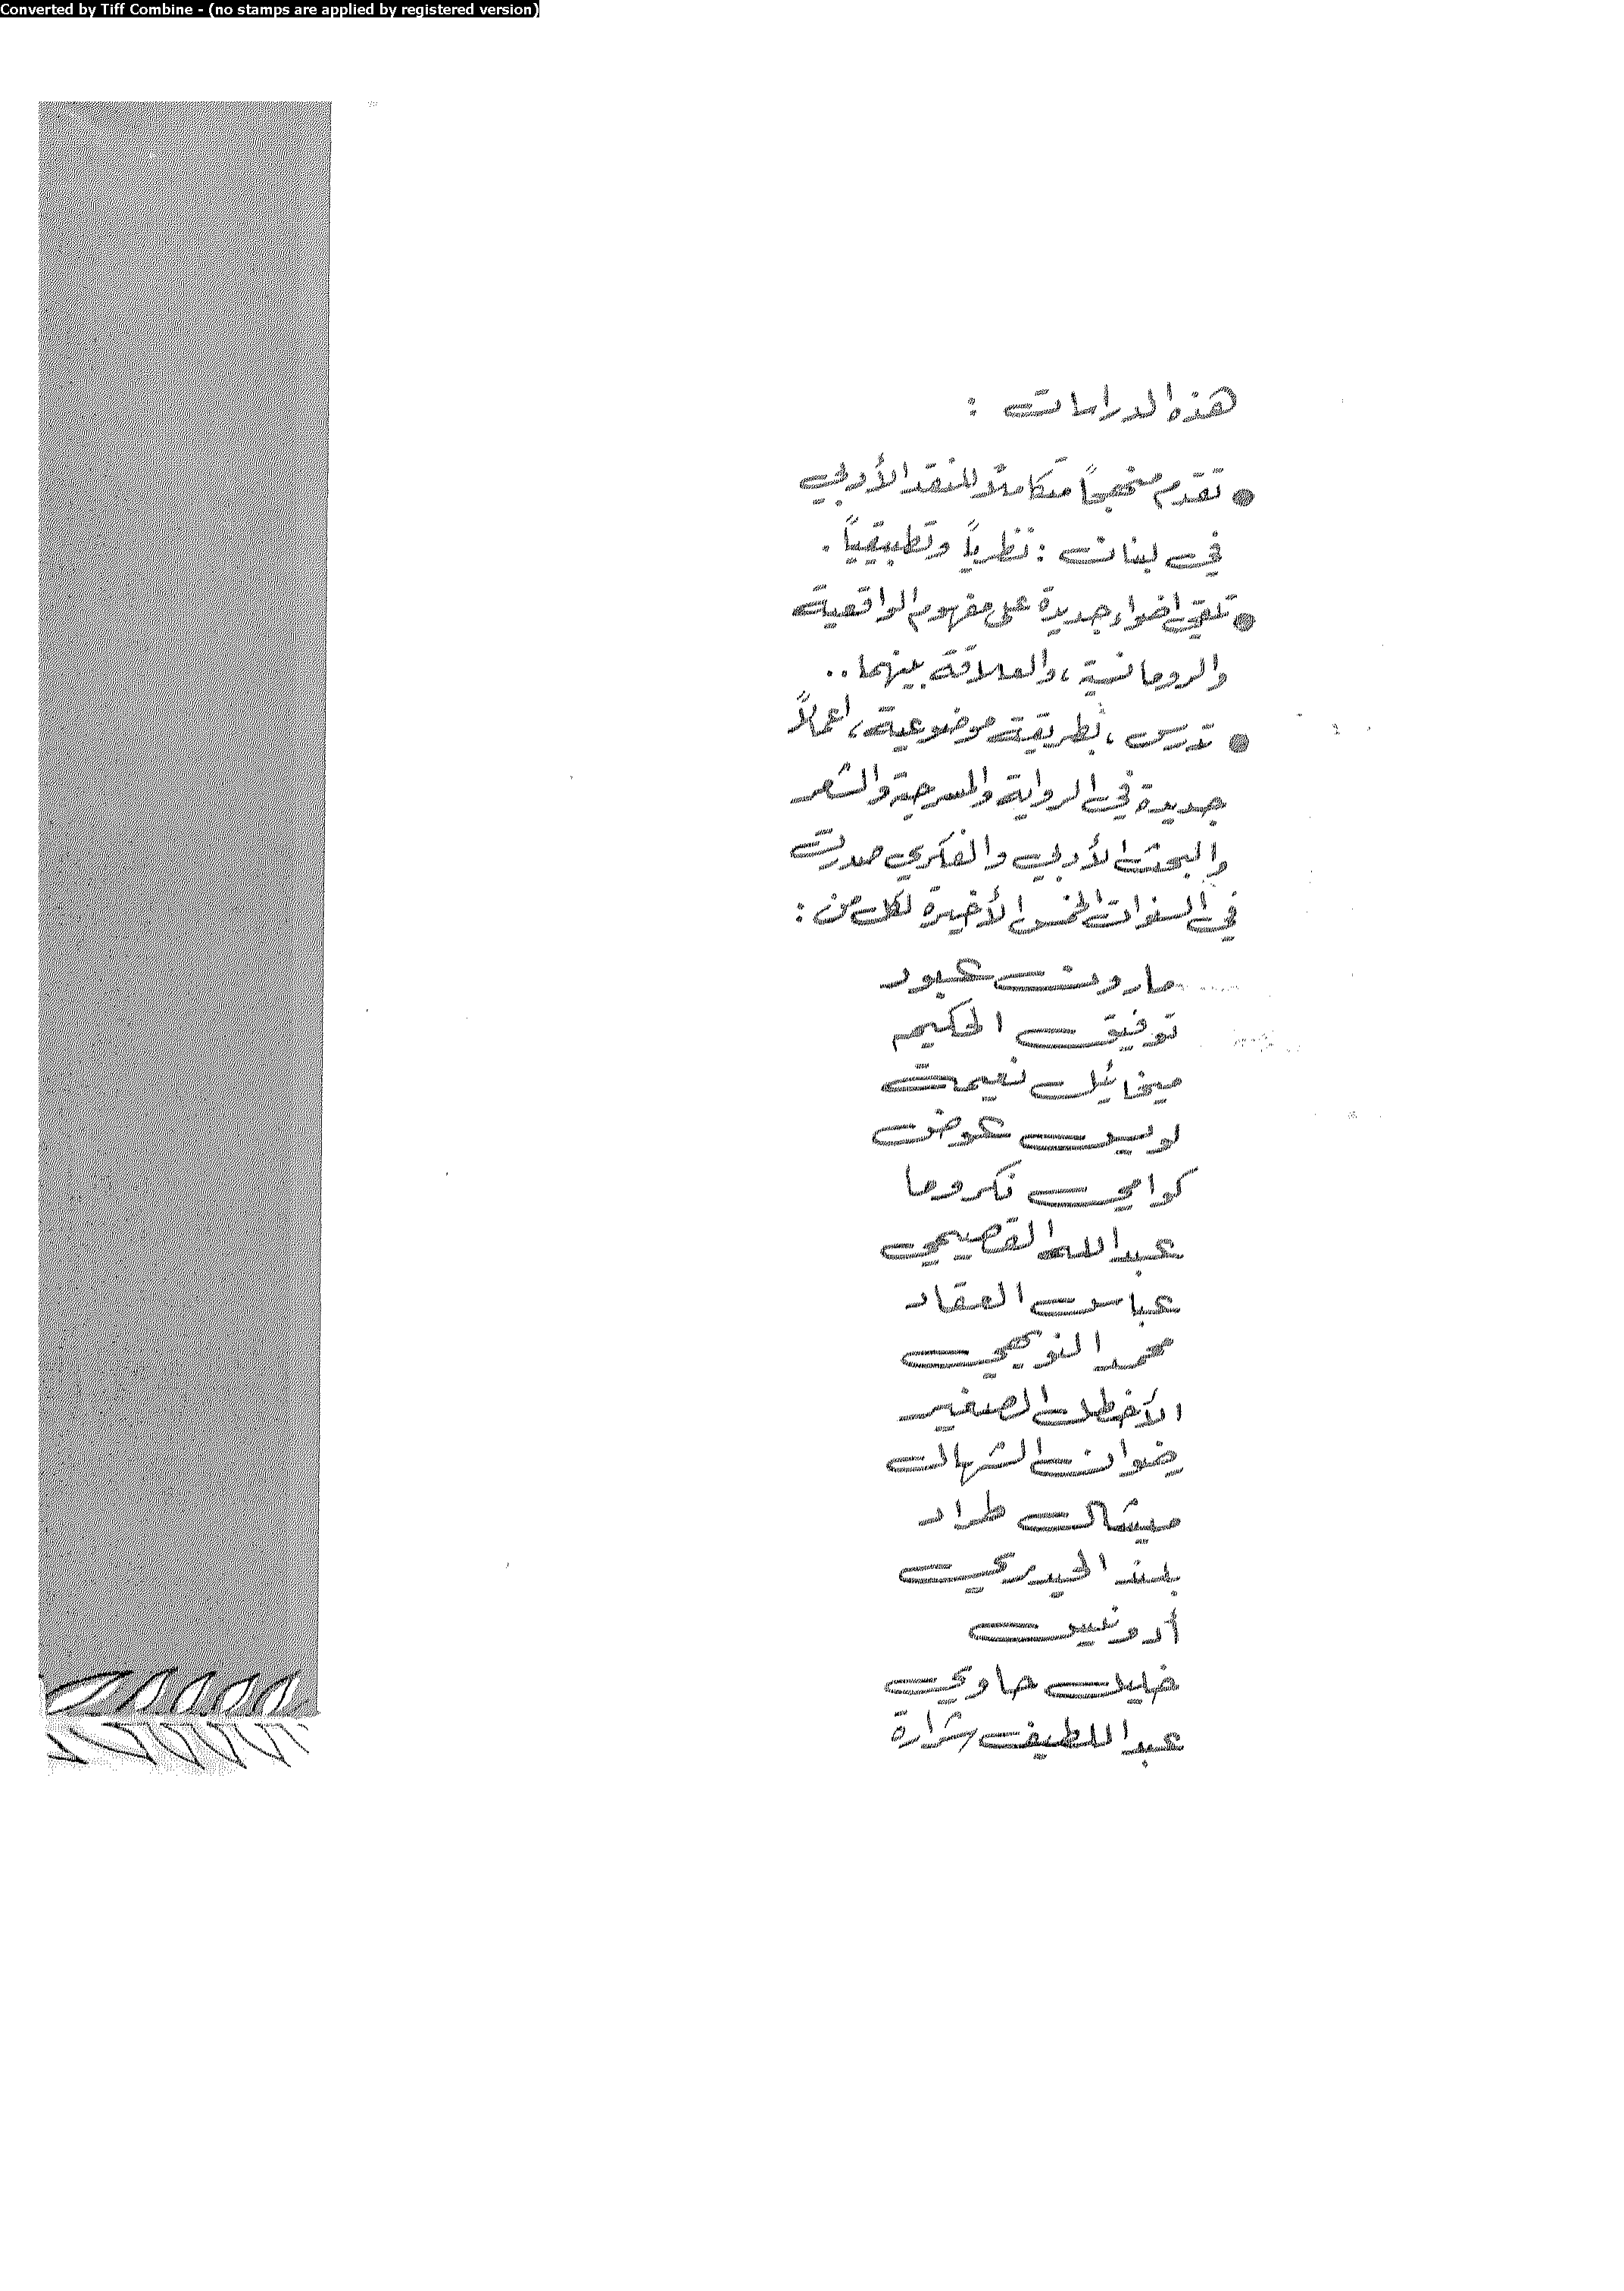 Converted by Tiff Combine - (no stamps are applied by registered version)
هذه الدراسات :
● تقدم منهجاً متكاملاً للنقد الأدبي
في لبنان : نظرياً وتطبيقياً .
● تلقي اضواء جديدة على مفهوم الواقعية
والرومانسية ، والعلاقة بينهما ..
● تدرس ، بطريقة موضوعية ، اعمالاً
جديدة في الرواية والمسرحية والشعر
والبحث الأدبي والفكري صدرت
في السنوات الخمس الأخيرة لكل من :
مارون عبود
توفيق الحكيم
ميخائيل نعيمة
لويس عوض
كوامي نكروما
عبدالله القصيمي
عباس العقاد
محمد النويهي
الأخطل الصغير
رضوان الشهال
ميشال طراد
بلند الحيدري
أدونيس
خليل حاوي
عبداللطيف شرارة